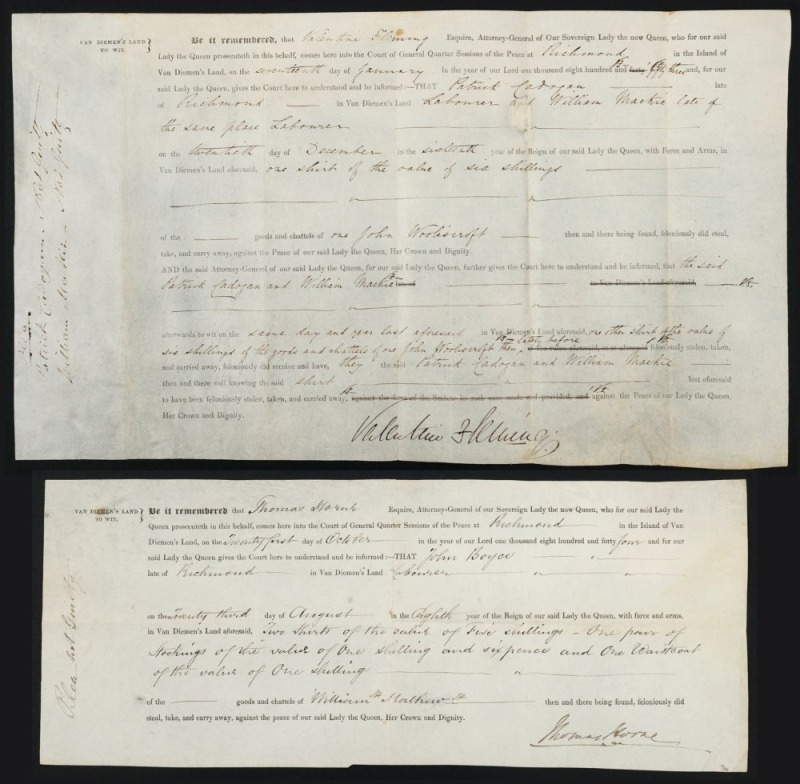 VAN DIEMEN'S LAND
TO WIT.
Be it remembered, that Valentine Fleming Esquire, Attorney-General of Our Sovereign Lady the now Queen, who for our said
Lady the Queen prosecuteth in this behalf, comes here into the Court of General Quarter Sessions of the Peace at Richmond in the Island of
Van Diemen's Land, on the seventeenth day of January in the year of our Lord one thousand eight hundred and forty fifty three and, for our
said Lady the Queen, gives the Court here to understand and be informed:—THAT Patrick Cadogan late
of Richmond in Van Diemen's Land Labourer and William Mackie late of
the same place Labourer
on the twentieth day of December in the sixteenth year of the Reign of our said Lady the Queen, with Force and Arms, in
Van Diemen's Land aforesaid, one shirt of the value of six shillings
of the goods and chattels of one John Wooliscroft then and there being found, feloniously did steal,
take, and carry away, against the Peace of our said Lady the Queen, Her Crown and Dignity.
AND the said Attorney-General of our said Lady the Queen, for our said Lady the Queen, further gives the Court here to understand and be informed, that the said
Patrick Cadogan and William Mackie late of in Van Diemen's Land aforesaid,
afterwards to wit on the same day and year last aforesaid in Van Diemen's Land aforesaid, one other shirt of the value of
six shillings of the goods and chattels of one John Wooliscroft then lately before feloniously stolen, taken,
and carried away, feloniously did receive and have, they the said Patrick Cadogan and William Mackie
then and there well knowing the said shirt last aforesaid
to have been feloniously stolen, taken, and carried away, against the form of the Statute in such case made and provided, and against the Peace of our Lady the Queen,
Her Crown and Dignity.
Valentine Fleming
Plea
Patrick Cadogan Not Guilty
William Mackie Not Guilty
VAN DIEMEN'S LAND
TO WIT.
Be it remembered that Thomas Horne Esquire, Attorney-General of our Sovereign Lady the now Queen, who for our said Lady the
Queen prosecuteth in this behalf, comes here into the Court of General Quarter Sessions of the Peace at Richmond in the Island of Van
Diemen's Land, on the Twenty first day of October in the year of our Lord one thousand eight hundred and forty four and for our
said Lady the Queen gives the Court here to understand and be informed:—THAT John Boyce
late of Richmond in Van Diemen's Land Labourer
on the Twenty third day of August in the Eighth year of the Reign of our said Lady the Queen, with force and arms,
in Van Diemen's Land aforesaid, Two Shirts of the value of Five shillings - One pair of
stockings of the value of One shilling and sixpence and One Waistcoat
of the value of One shilling
of the goods and chattels of William Mathew then and there being found, feloniously did
steal, take, and carry away, against the peace of our said Lady the Queen, Her Crown and Dignity.
Thomas Horne
Plea Not Guilty